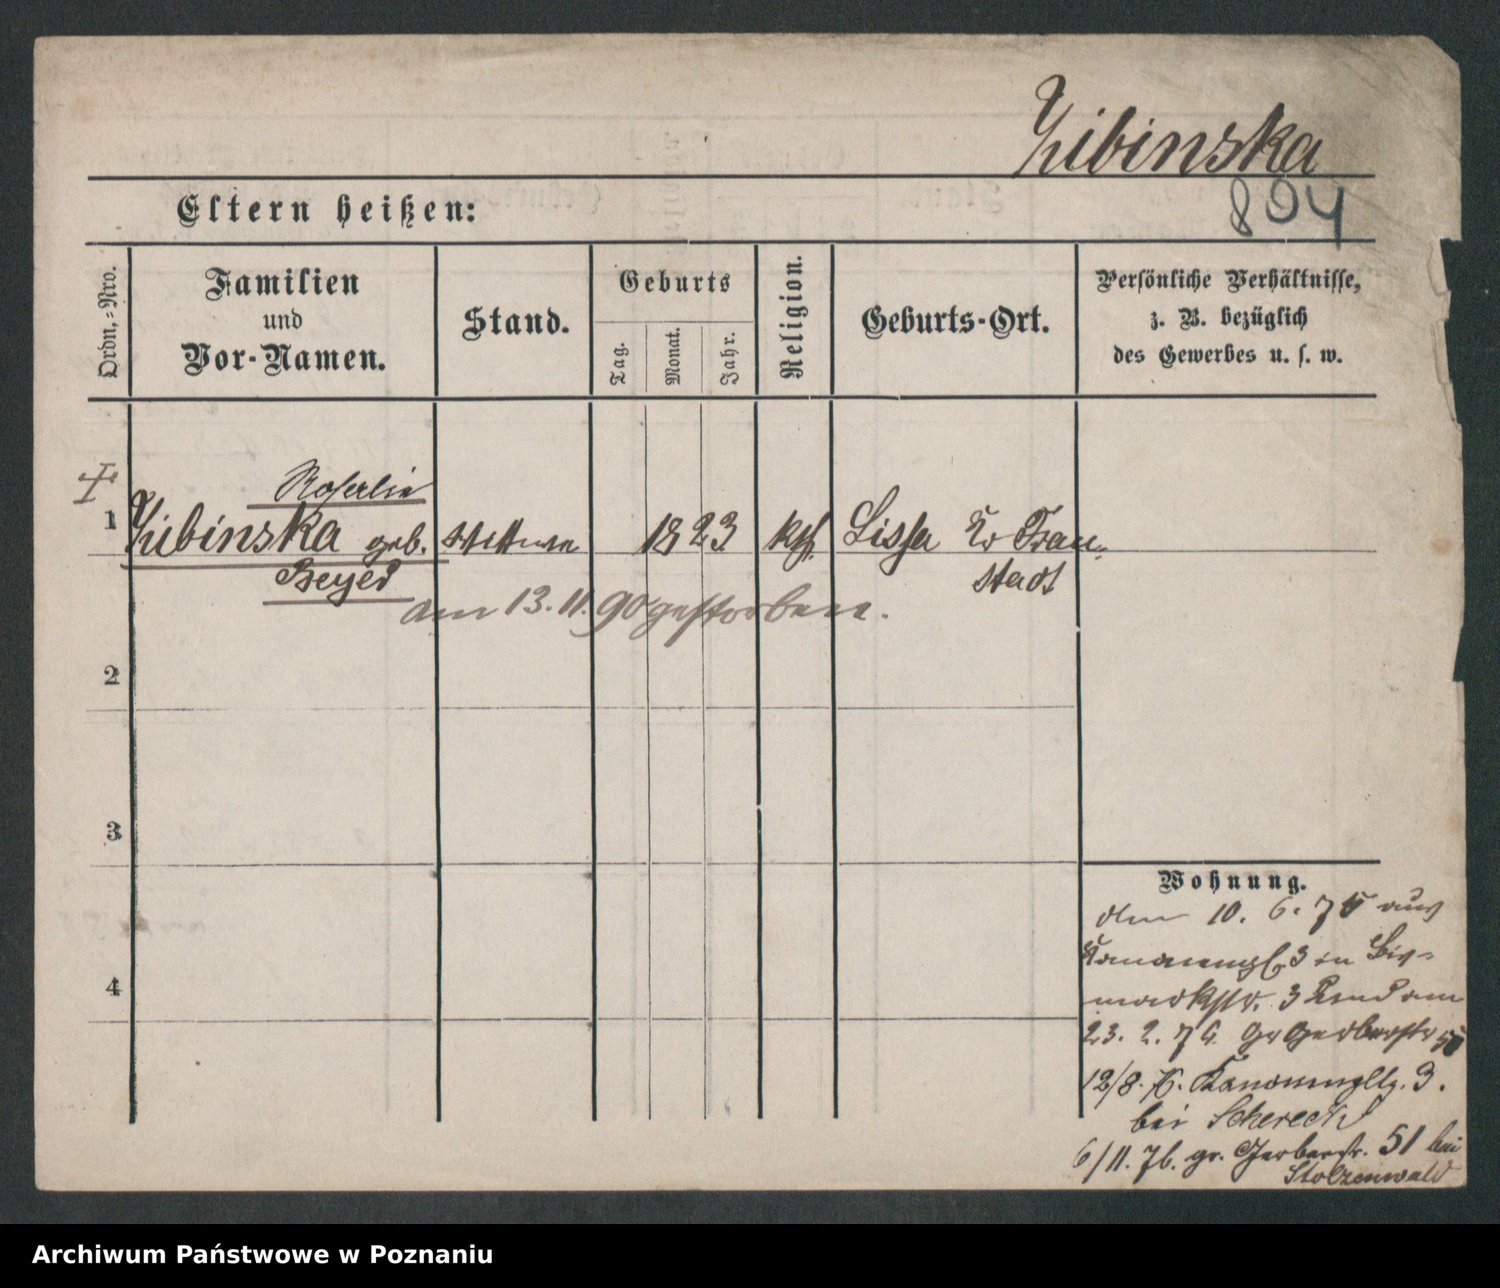 Zibinska
804
Eltern heißen:
Ordn.=Nro.
Familien
und
Vor-Namen.
Stand.
Geburts
Tag.
Monat.
Jahr.
Religion.
Geburts-Ort.
Persönliche Verhältnisse,
z. B. bezüglich
des Gewerbes u. s. w.
Rosalie
1 Zibinska geb. Wittwe 1823 kth. Lissa Kr Frau-
Beyer stadt
am 13. 11. 90 gestorben.
2
3
4
Wohnung.
den 10. 6. 75 aus
Kanonenpl. 3 in Bis-
markstr. 3 am
23. 2. 76 Gr Gerberstr 50
12/8. 76. Kanonenpltz. 3.
bei Schereck
6/11. 76. gr. Gerberstr. 51 bei
Stolzenwald
Archiwum Państwowe w Poznaniu